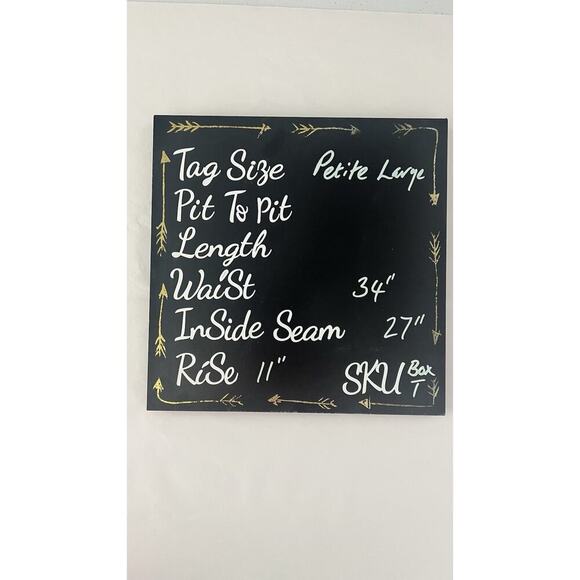 Tag Size Petite Large
Pit To Pit
Length
WaiSt 34"
InSide Seam 27"
RiSe 11"
SKU Box T